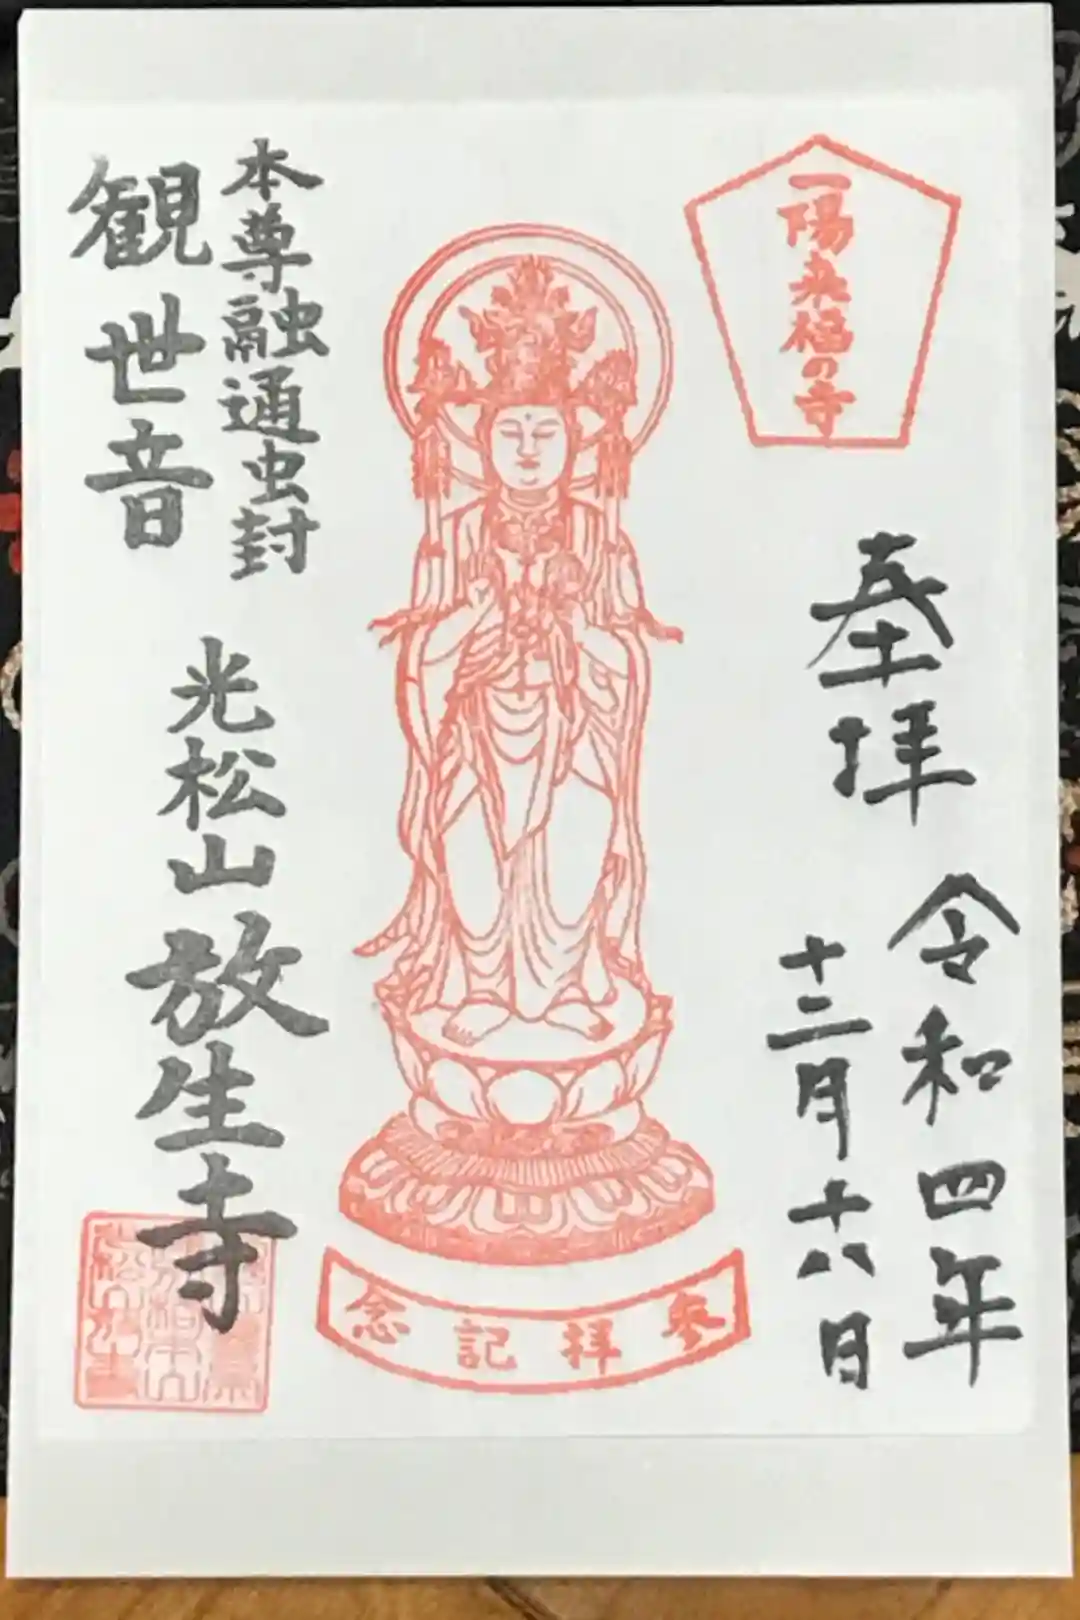 一陽来福の寺
奉拝
令和四年
十二月十八日
参拝記念
本尊融通虫封
観世音
光松山放生寺